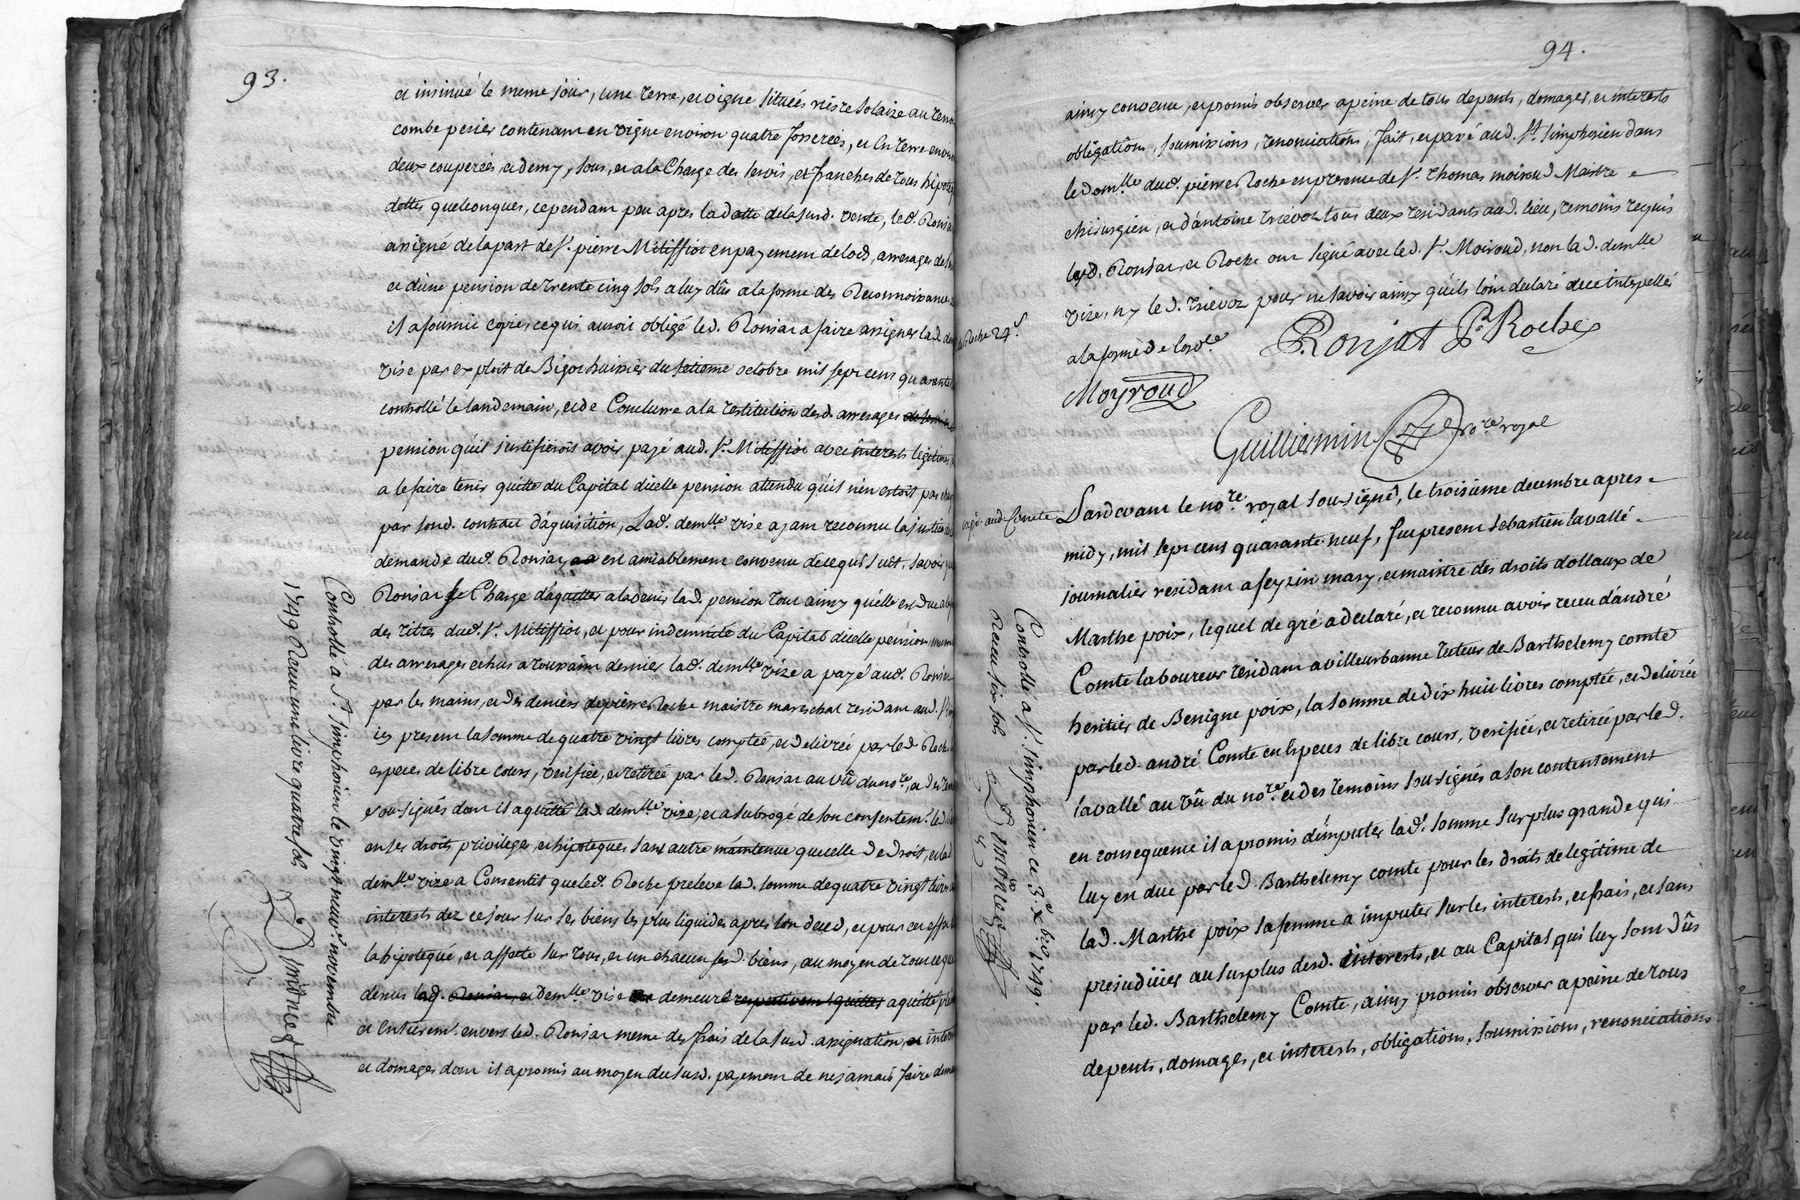 93.
et insinué le meme jour, une terre, et vigne situées riere Solaize au terr
combe perier contenant en vigne environ quatre fosserées, et en terre envir
deux couperées et demy, sous, et a la Charge des servis, et franches de tous hipote
dettes quelconques, cependant peu apres la datte de la susd. vente, led. Ronjat
assigné de la part de Sr. pierre Mitiffiot en payement de lods, arrerages de
et d'une pension de trente cinq sols a luy dûs a la forme des Reconnoissances
il a fournie copie, ce qui auroit obligé led. Ronjat a faire assigner lad. dem
Vise par exploit de Bigot huissier du setieme octobre mil sept cens quarante
controllé le landemain, et de Conclurre a la restitution desd. arrerages de
pension qu'il justifieroit avoir payé aud. Sr. Mitiffiot avec interests legitimes
a le faire tenir quitte du Capital d'icelle pension attendu qu'il n'en estoit pas
par sond. contract d'aquisition, Lad. demlle. vise ayant reconnu la justice
demande dud. Ronjat est amiablement convenu de ce qui suit, savoir que
Ronjat se Charge d'aquitter a l'advenir lad. pension tout ainsy qu'elle est due a
des titres dud. Sr. Mitiffiot, et pour indemnité du Capital d'icelle pension,
des arrerages echus a toussaint dernier lad. demlle. vize a payé aud. Ronjat
par les mains, et des deniers de pierre Roche maistre mareschal residant aud. St.
icy present la somme de quatre vingt livres comptée, et delivrée par led. Roche
especes de libre cours, verifiée, et retirée par led. Ronjat au vû du nore, et des tem
sousignés dont il a quitté lad. demlle vize, et a subrogé de son consentemt. led.
en ses droits, privilege, et hipoteques sans autre maintenue que celle de droit, et lad.
demlle. vize a Consentit que led. Roche preleve lad. somme de quatre vingt livres
interests dez ce jour sur ses biens les plus liquides apres son deced, et pour cet effet
la hipotequé, et affecté sur tous, et un chacun sesd. biens, au moyen de tout ce que
dessus lad. Ronjat, et demlle vise demeure respectivemt. quittes a quitté
et Entierem. envers led. Ronjat meme des frais de la susd. assignation, et inter
et domages dont il a promis au moyen du susd. payement de ne jamais faire dem
Controllé a St. simphorien le vingt neuv. novembre
1749 Receu une livre quatre sols
94.
ainsy convenu, et promis observer a peine de tous depents, domages, et interests
obligations, soumissions, renonciations, fait, et passé aud. St. simphorien dans
le domlle. dud. pierre Roche en presence de Sr. Thomas moiroud Maitre
chirurgien, et d'antoine trievoz tous deux residants aud. lieu, temoins requis
lesd. Ronjat, et Roche ont signé avec led. Sr. Moiroud, non lad. demlle
vize, ny led. trievoz pour ne savoir ainsy qu'ils l'ont declaré de ce interpellés
a la forme de l'ordce.
Roche 24s.
Ronjat P. Roche
Moyroud
Guilliermin nore. royal
Pardevant le nore. royal sousigné, le troisieme decembre apres
midy, mil sept cens quarante neuf, fut present sebastien lavallé
journalier residant a feyzin mary, et maistre des droits dottaux de
Marthe poix, lequel de gré a declaré, et reconnu avoir receu d'andré
Comte laboureur residant a villeurbanne tuteur de Barthelemy comte
heritier de Benigne poix, la somme de dix huit livres comptée, et delivrée
par led. andré Comte en Especes de libre cours, verifiée, et retirée par led.
lavallé au vû du nore. et des temoins sousignés a son contentement
en consequence il a promis d'imputer lad. somme sur plus grande qui
luy en due par led. Barthelemy comte pour les droits de legitime de
lad. Marthe poix sa femme a imputer sur les interests, et frais, et sans
prejudicier au surplus desd. interests, et au Capital qui luy sont dûs
par led. Barthelemy Comte, ainsy promis observer a peine de tous
depents, domages, et interests, obligations, soumissions, renonciations
Controllé a St. simphorien ce 3e. xbre 1749.
Receu six sols